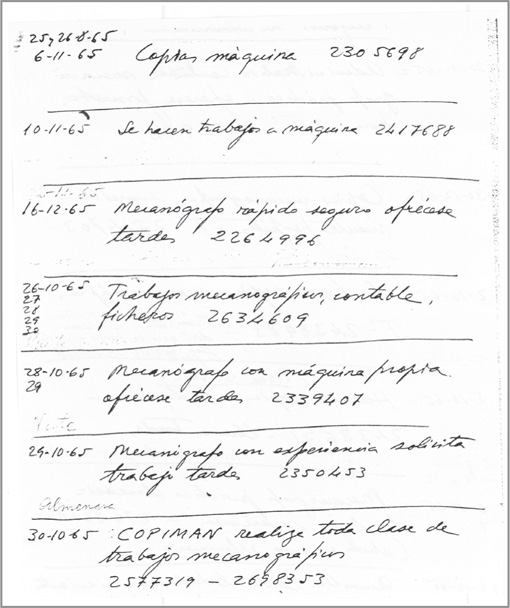 25y26-8-65
6-11-65 Copias máquina 2305698
10-11-65 Se hacen trabajos a máquina 2417688
16-12-65 Mecanógrafo rápido seguro ofrécese
tardes 2264996
26-10-65 Trabajos mecanográficos, contable,
27
28 ficheros 2634609
29
30
28-10-65 Mecanógrafo con máquina propia
29 ofrécese tardes 2339407
29-10-65 Mecanógrafo con experiencia solicita
trabajo tardes 2350453
Almenara
30-10-65 COPIMAN realiza toda clase de
trabajos mecanográficos
2577319 - 2698353